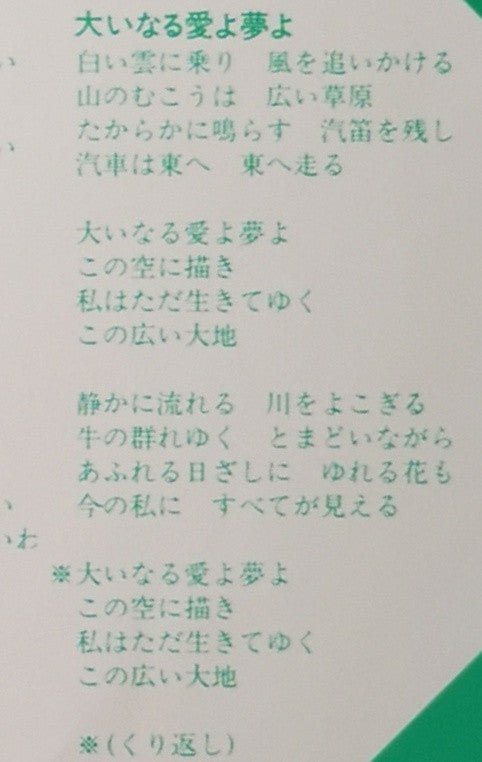 大いなる愛よ夢よ
白い雲に乗り　風を追いかける
山のむこうは　広い草原
たからかに鳴らす　汽笛を残し
汽車は東へ　東へ走る
大いなる愛よ夢よ
この空に描き
私はただ生きてゆく
この広い大地
静かに流れる　川をよこぎる
牛の群れゆく　とまどいながら
あふれる日ざしに　ゆれる花も
今の私に　すべてが見える
※大いなる愛よ夢よ
この空に描き
私はただ生きてゆく
この広い大地
※(くり返し)